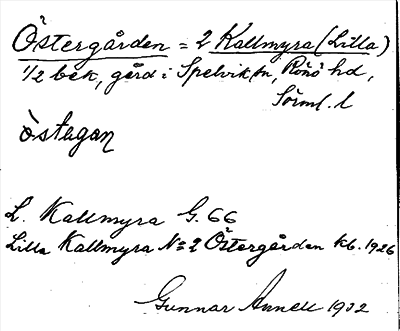 Östergården = 2 Kallmyra (Lilla)
1/2 bek, gård i Spelvik sn, Rönö hd,
Sörml. l
östagan
L. Kallmyra G. 66
Lilla Kallmyra No 2 Östergården kb. 1926
Gunnar Annell 1932